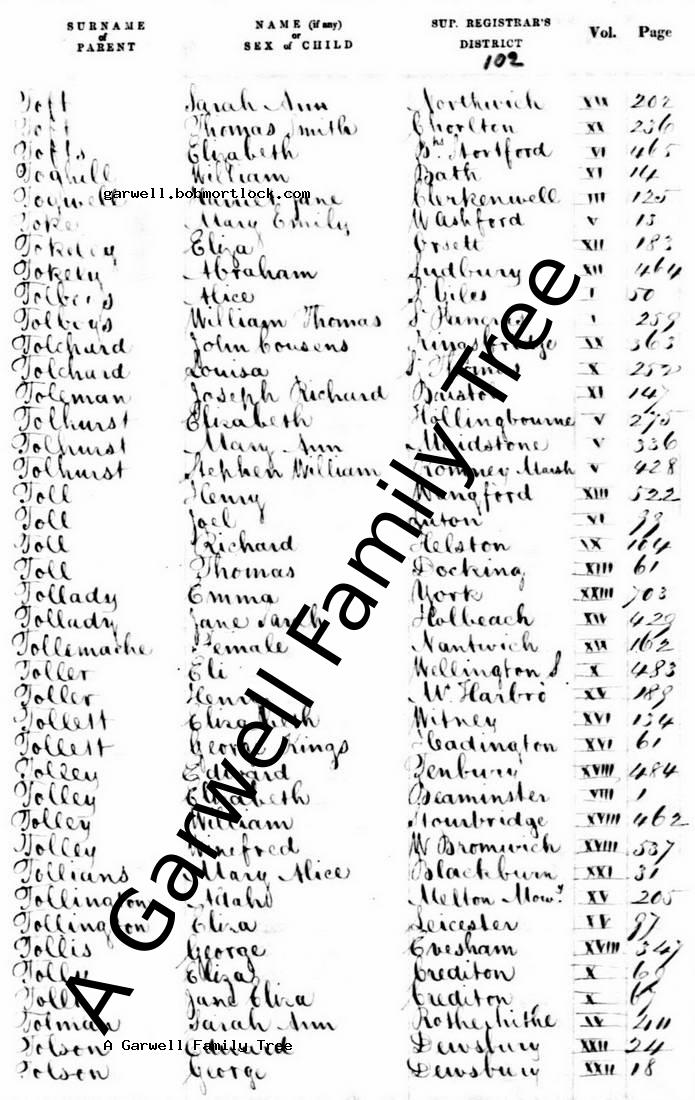 SURNAME of PARENT NAME (if any) or SEX of CHILD SUP. REGISTRAR'S DISTRICT Vol. Page
102
Toft Sarah Ann Northwich XIX 202
Toft Thomas Smith Chorlton XX 236
Tofts Elizabeth Bs. Stortford VI 465
Toghill William Bath VI 14
garwell.bobmortlock.com
Togwell Jane Clerkenwell III 125
Toke Mary Emily W Ashford V 13
Tokeley Eliza Orsett XII 183
Tokely Abraham Sudbury XII 464
Tolboys Alice St Giles I 50
Tolboys William Thomas St Pancras I 259
Tolchard John Cousens Kingsbridge IX 363
Tolchard Louisa St Thomas X 252
Toleman Joseph Richard Bristol XI 147
Tolhurst Elizabeth Hollingbourne V 275
Tolhurst Mary Ann Maidstone V 336
Tolhurst Stephen William Romney Marsh V 428
Toll Henry Wangford XIII 522
Toll Joel Luton VI 99
Toll Richard Helston IX 164
Toll Thomas Docking XIII 61
Tollady Emma York XXIII 703
Tollady Jane Sarah Holbeach XIV 429
Tollemache Female Nantwich XIX 162
Toller Eli Wellington S. X 483
Toller Henry Mt. Harbro XV 189
Tollett Elizabeth Witney XVI 134
Tollett George Kings Headington XVI 61
Tolley Edward Tenbury XVIII 484
Tolley Elizabeth Beaminster VIII 1
Tolley William Stourbridge XVIII 462
Tolley Winefred W Bromwich XVIII 537
Tollians Mary Alice Blackburn XXI 31
Tollington Adah Melton Mowy. XV 205
Tollington Eliza Leicester XV 97
Tollis George Evesham XVIII 347
Eliza Crediton X
Jane Eliza Crediton X
Tolman Sarah Ann Rotherhithe IV 411
Tolson Dewsbury XXII 24
A Garwell Family Tree
Tolson George Dewsbury XXII 18
A Garwell Family Tree